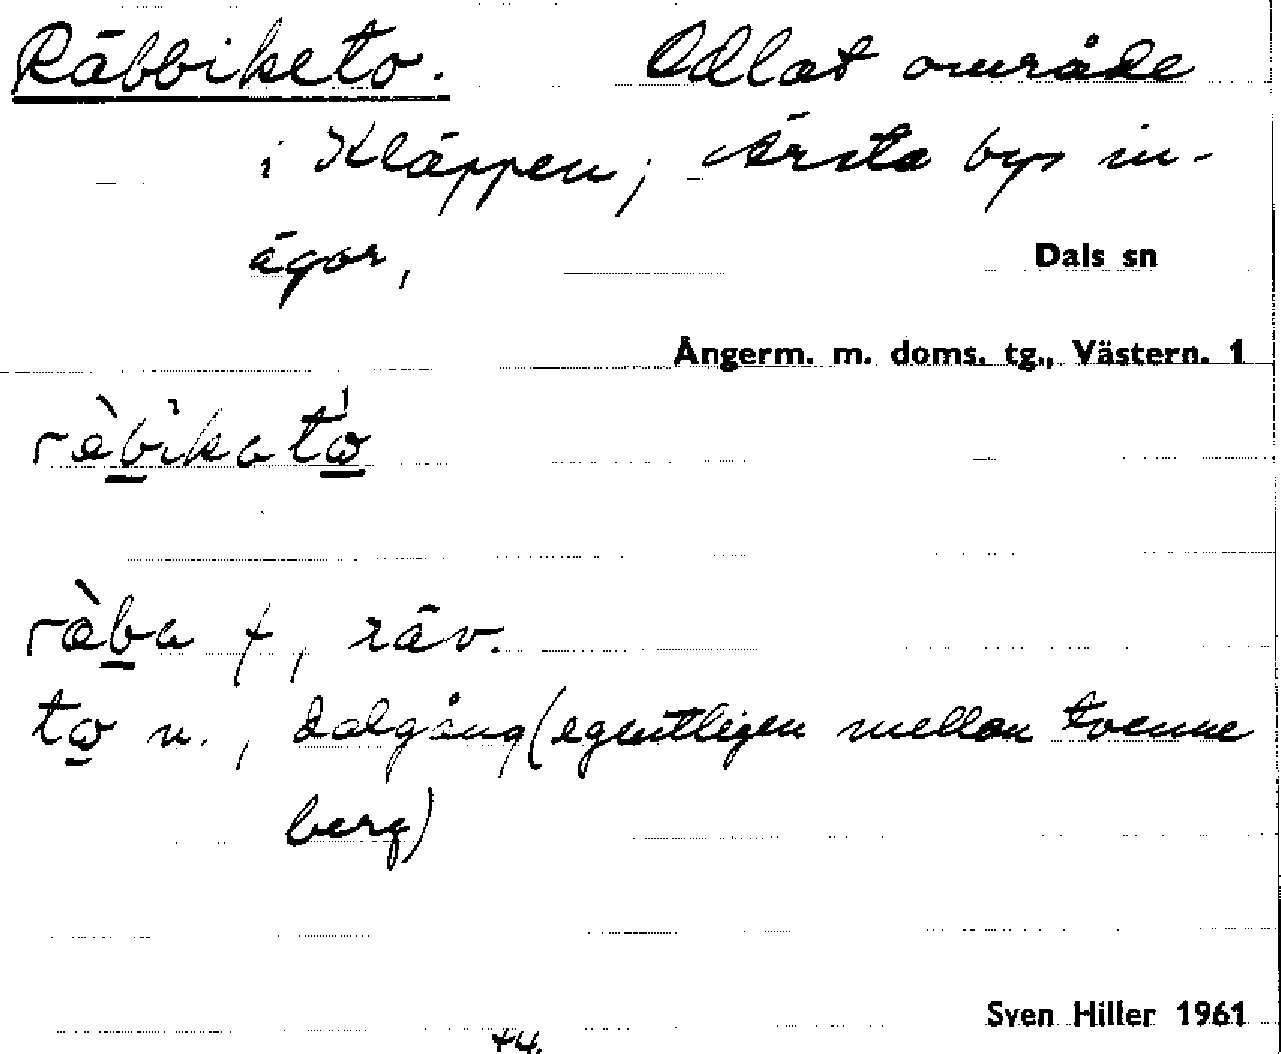 Räbbiketo. Odlat område
i Kläppen; Ärsta bys in-
ägor,
Dals sn
Ångerm. m. doms. tg., Västern. 1
räba f, räv.
to n., dalgång (egentligen mellan tvenne
berg)
Sven Hiller 1961